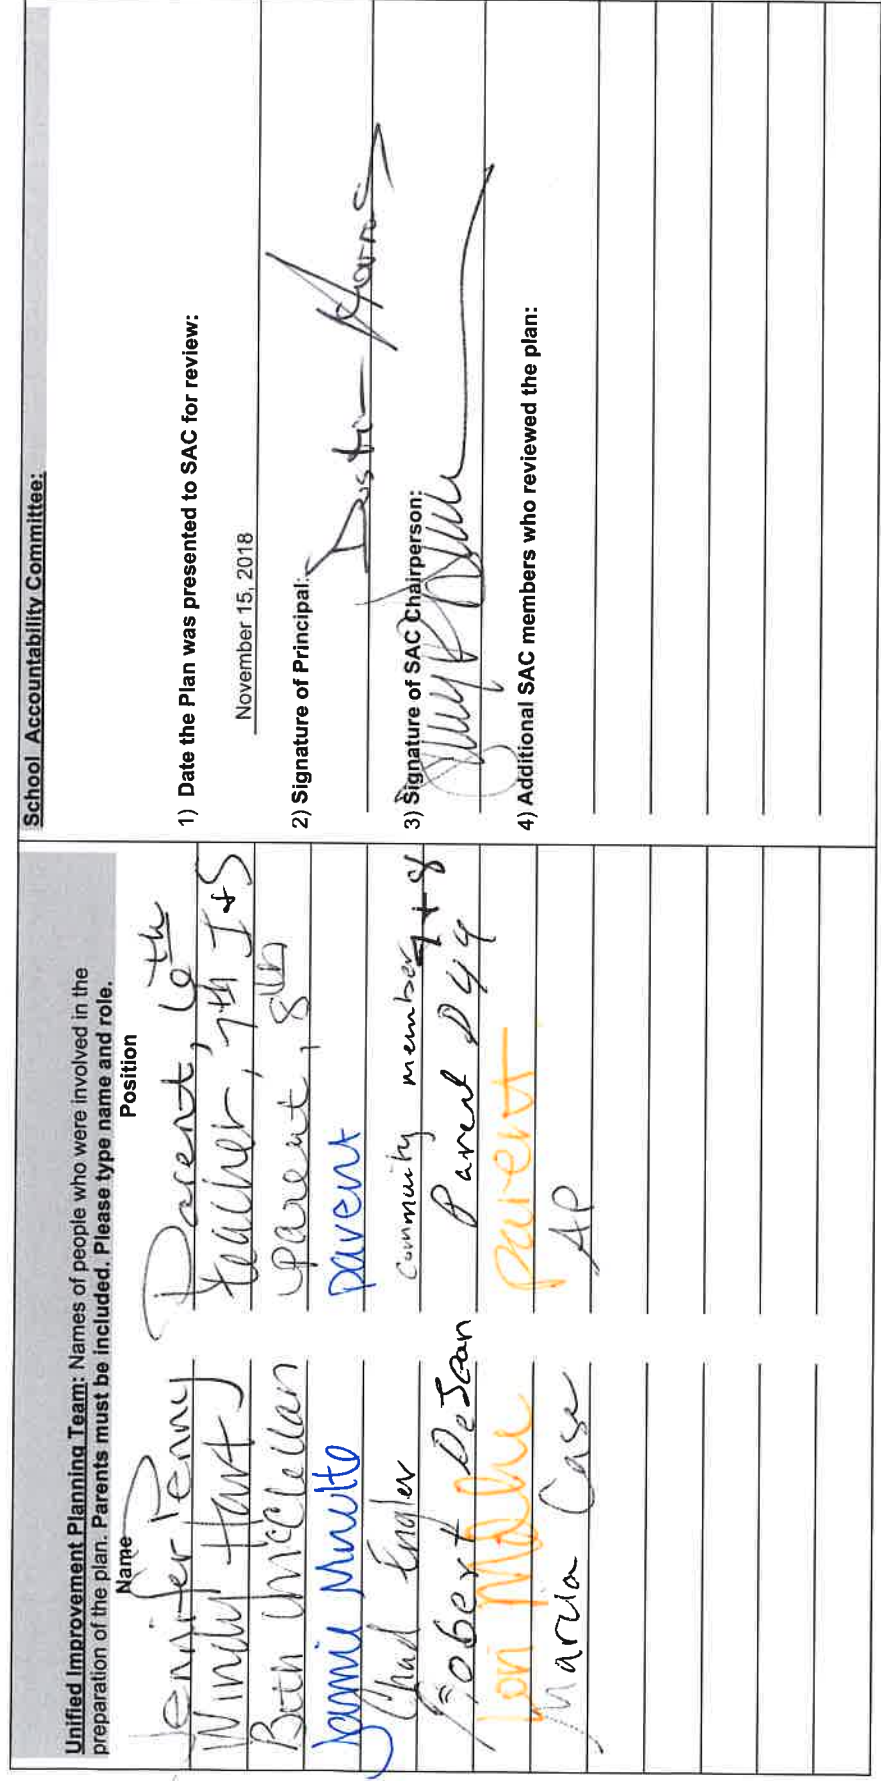 Unified Improvement Planning Team: Names of people who were involved in the
preparation of the plan. Parents must be included. Please type name and role.
Name Position
Jennifer Penny Parent, 6th
Windy Hart Teacher, 7th I+S
Beth McClellan parent, 8th
Jamie Multo parent
Chad Engler Community member 7+8
Robert DeJean Parent
Lori parent
Marcia Case AP
School Accountability Committee:
1) Date the Plan was presented to SAC for review:
November 15, 2018
2) Signature of Principal:
3) Signature of SAC Chairperson:
4) Additional SAC members who reviewed the plan: